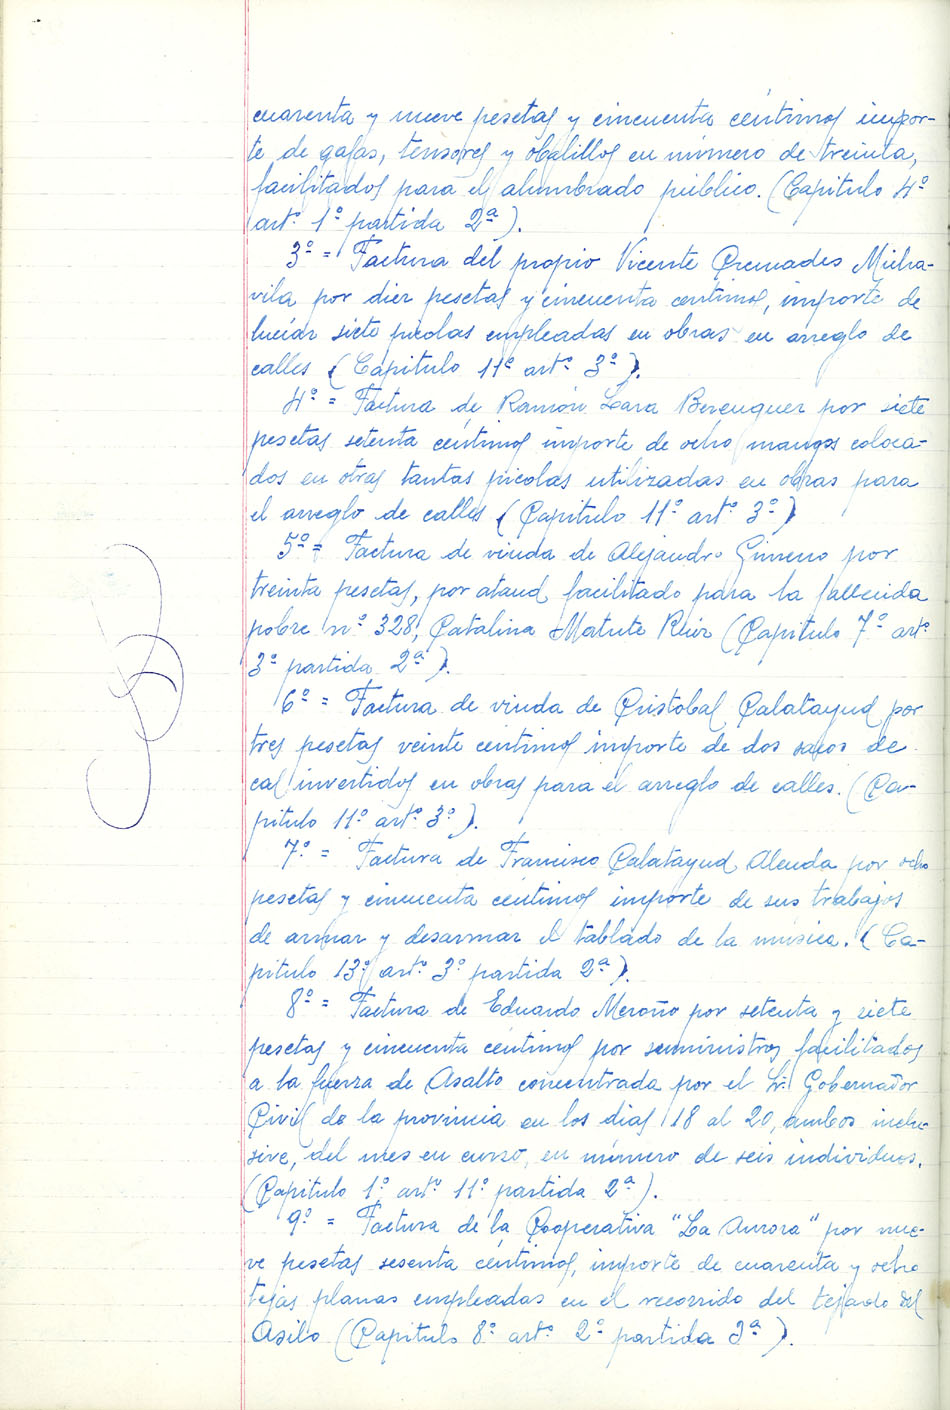 cuarenta y nueve pesetas y cincuenta céntimos impor-
te de gafas, tensores y obalillos en número de treinta,
facilitados para el alumbrado público. (Capitulo 4º
artº 1º partida 2ª).
3º = Factura del propio Vicente Cremades Mira-
vila por diez pesetas y cincuenta centimos, importe de
luciar siete picolas empleadas en obras en arreglo de
calles (Capitulo 11º artº 3º).
4º = Factura de Ramón Lara Berenguer por siete
pesetas setenta céntimos importe de ocho mangos coloca-
dos en otras tantas picolas utilizadas en obras para
el arreglo de calles (Capitulo 11º artº 3º)
5º = Factura de viuda de Alejandro Gimeno por
treinta pesetas, por ataud facilitado para la fallecida
pobre nº 328, Catalina Matute Ruiz (Capitulo 7º artº
3º partida 2ª).
6º = Factura de viuda de Cristobal Calatayud por
tres pesetas veinte centimos importe de dos sacos de
cal invertidos en obras para el arreglo de calles. (Ca-
pitulo 11º artº 3º).
7º = Factura de Francisco Calatayud Alenda por ocho
pesetas y cincuenta céntimos importe de sus trabajos
de armar y desarmar el tablado de la música. (Ca-
pitulo 13º artº 3º partida 2ª).
8º = Factura de Eduardo Meroño por setenta y siete
pesetas y cincuenta céntimos por suministros facilitados
a la fuerza de Asalto concentrada por el Sr. Gobernador
Civil de la provincia en los dias 18 al 20, ambos inclu-
sive, del mes en curso, en número de seis individuos.
(Capitulo 1º artº 11º partida 2ª).
9º = Factura de la Cooperativa "La Aurora" por nue-
ve pesetas sesenta céntimos, importe de cuarenta y ocho
tejas planas empleadas en el recorrido del tejado del
Asilo (Capitulo 8º artº 2º partida 3ª).